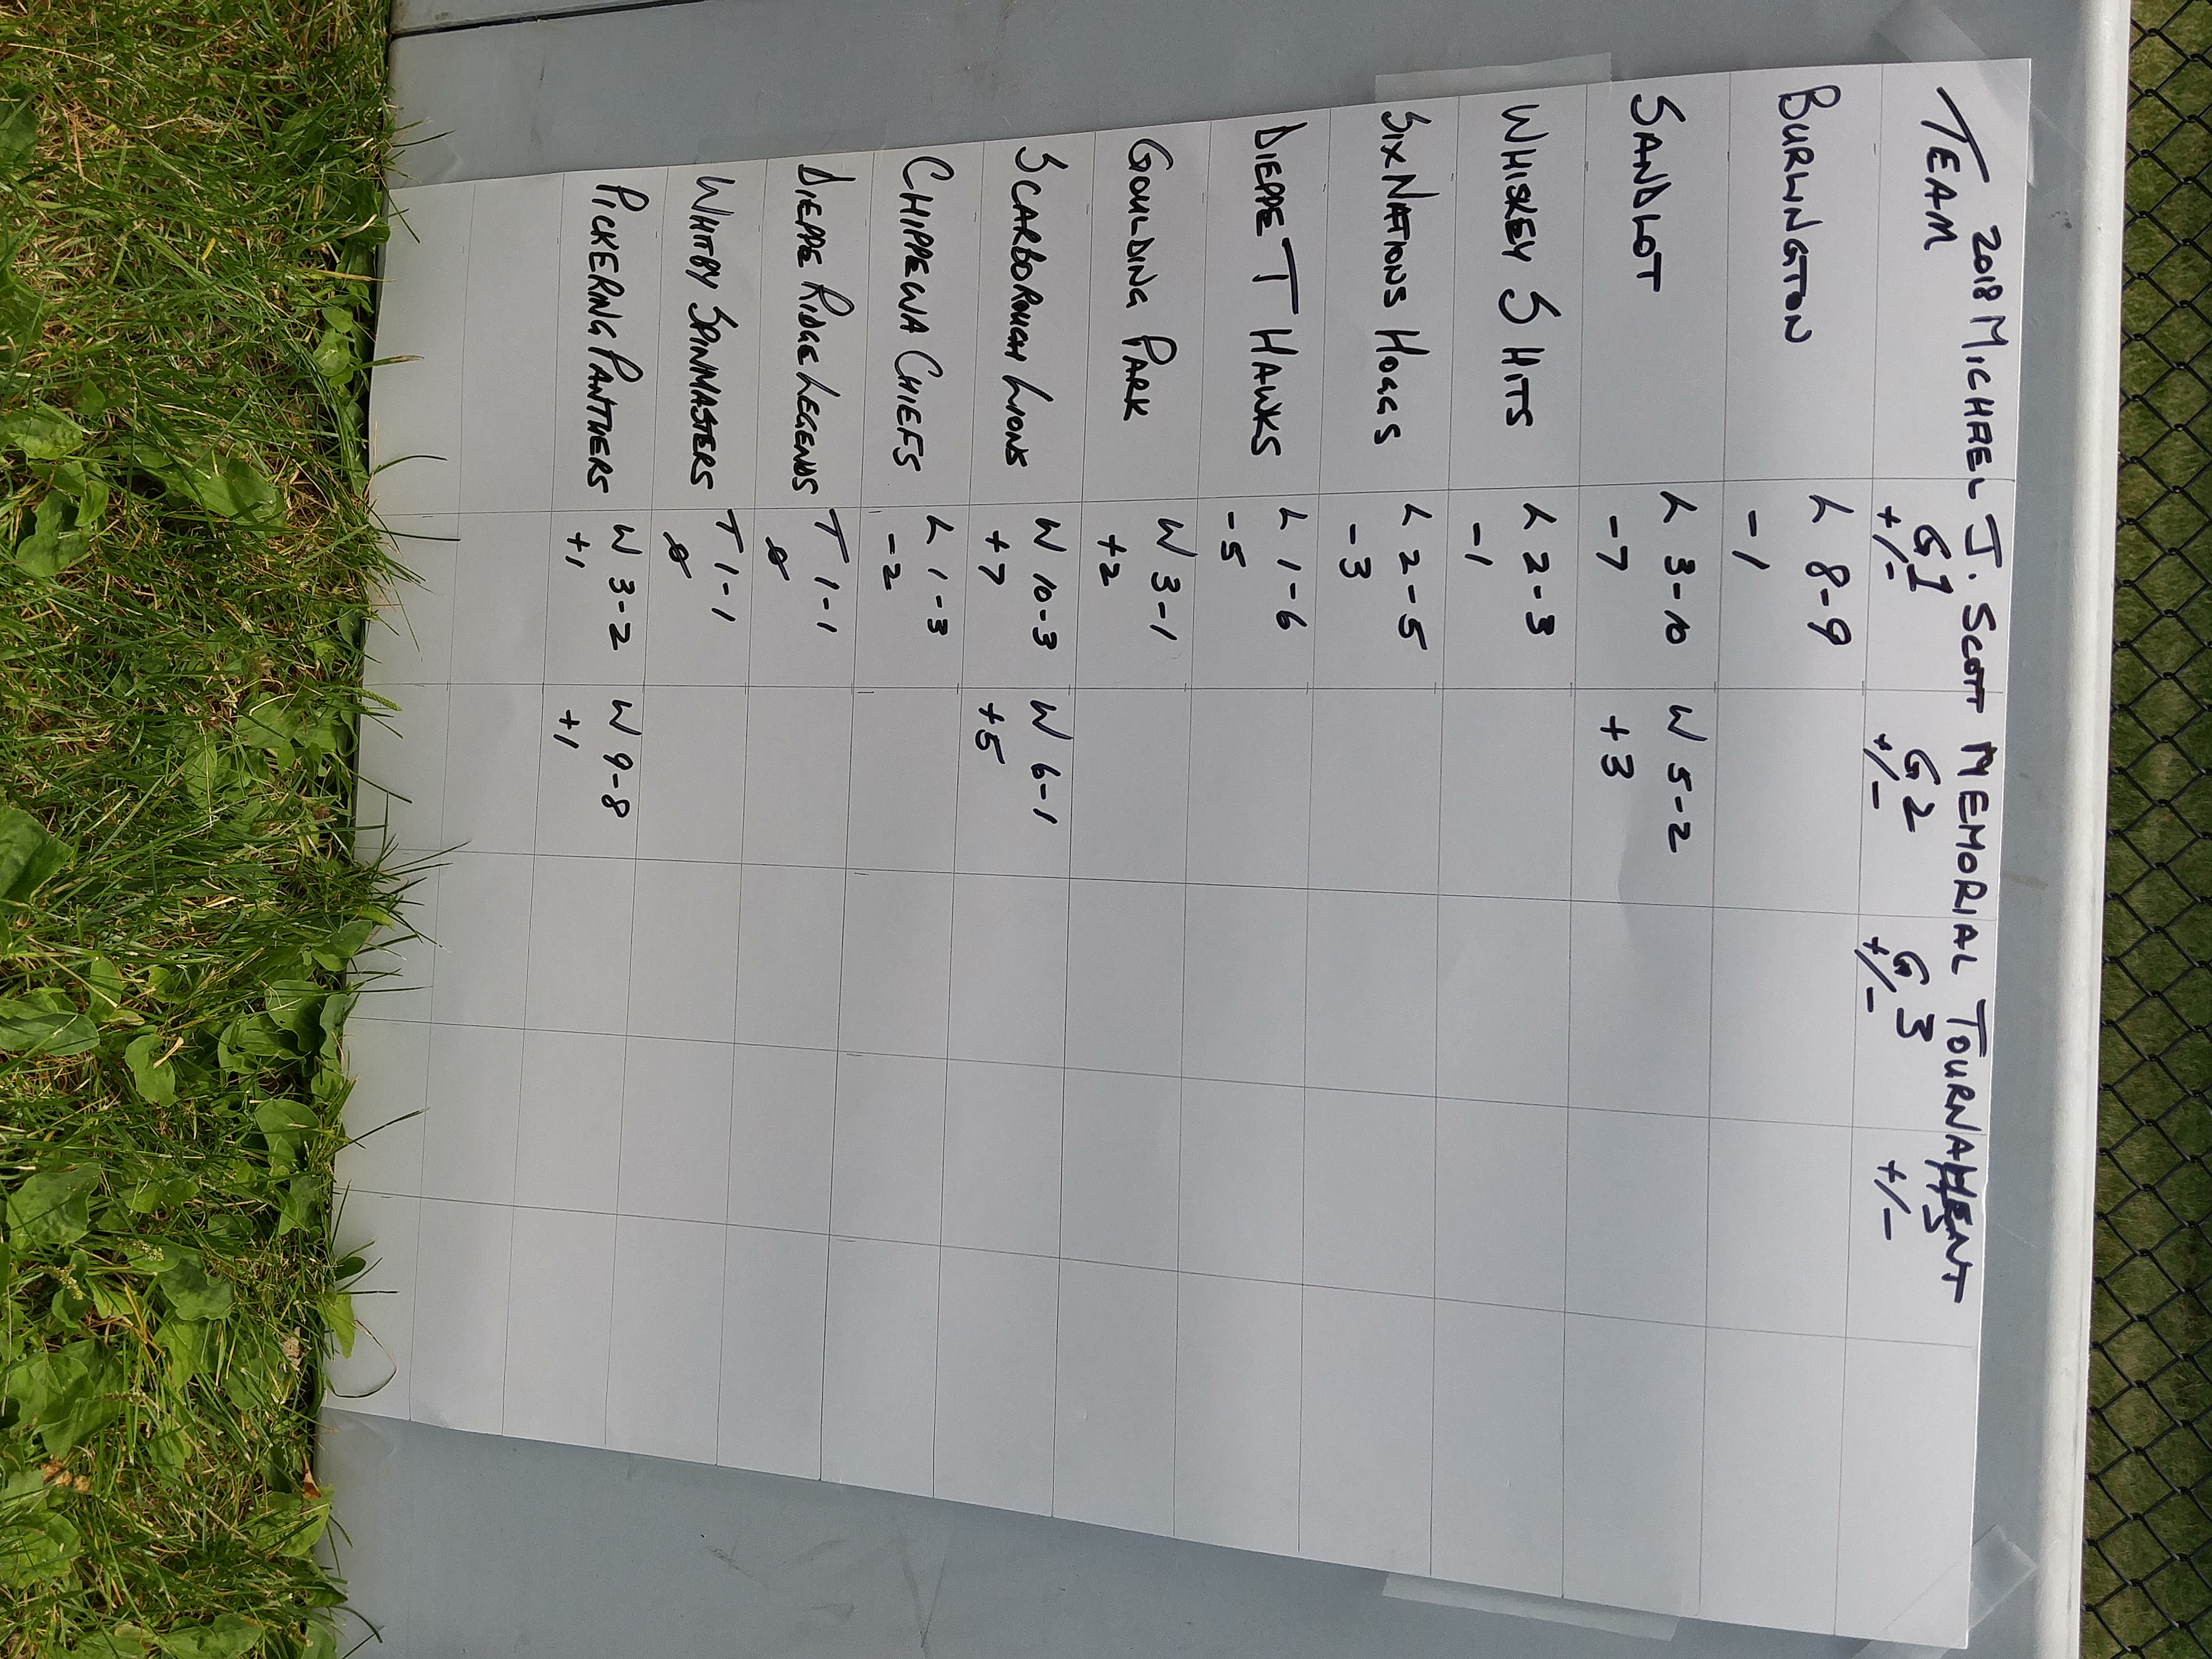 2018 MICHAEL J. SCOTT MEMORIAL TOURNAMENT
TEAM G1 G2 G3
+/- +/- +/- +/-
BURLINGTON L 8-9
-1
SANDLOT L 3-10 W 5-2
-7 +3
WHISKEY S HITS L 2-3
-1
SIX NATIONS HOGGS L 2-5
-3
DIEPPE T HAWKS L 1-6
-5
GOULDING PARK W 3-1
+2
SCARBOROUGH LIONS W 10-3 W 6-1
+7 +5
CHIPPEWA CHIEFS L 1-3
-2
DIEPPE RIDGE LEGENDS T 1-1
0
WHITBY SPINMASTERS T 1-1
0
PICKERING PANTHERS W 3-2 W 9-8
+1 +1